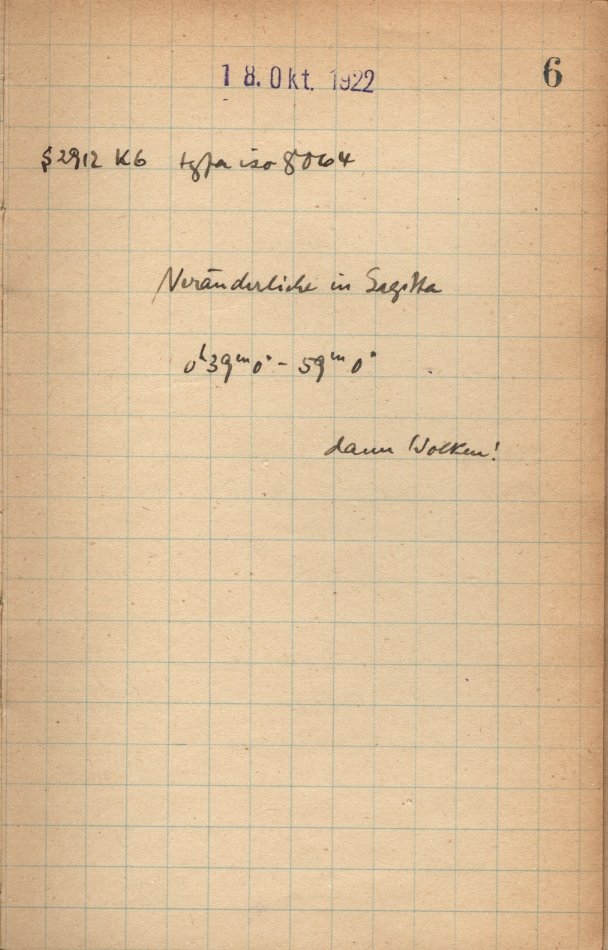 18. Okt. 1922
6
§2912 K6 Agfa iso 8064
Veränderliche in Sagitta
0ʰ39ᵐ0ˢ - 59ᵐ0ˢ
dann Wolken!